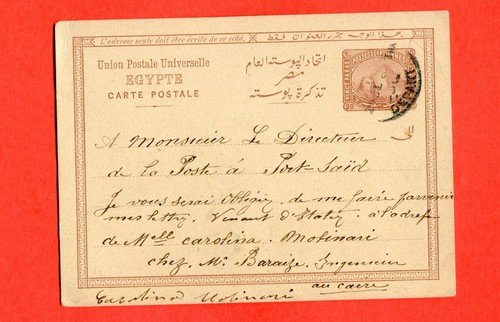 L'adresse seule doit être écrite de ce côté.
هذا الوجه محرر العنوان فقط
Union Postale Universelle
اتحاد البوسته العام
EGYPTE
مصر
CARTE POSTALE
تذكرة بوسته
A Monsieur Le Directeur
de la Poste á Port-Saïd
Je vous serai Obligée de me faire parvenir
mes lettres, Venant d'Italie, a l'adresse
de Melle Carolina Molinari
chez Mr. Baraize, Ingenieur
au Caire
Carolina Molinari